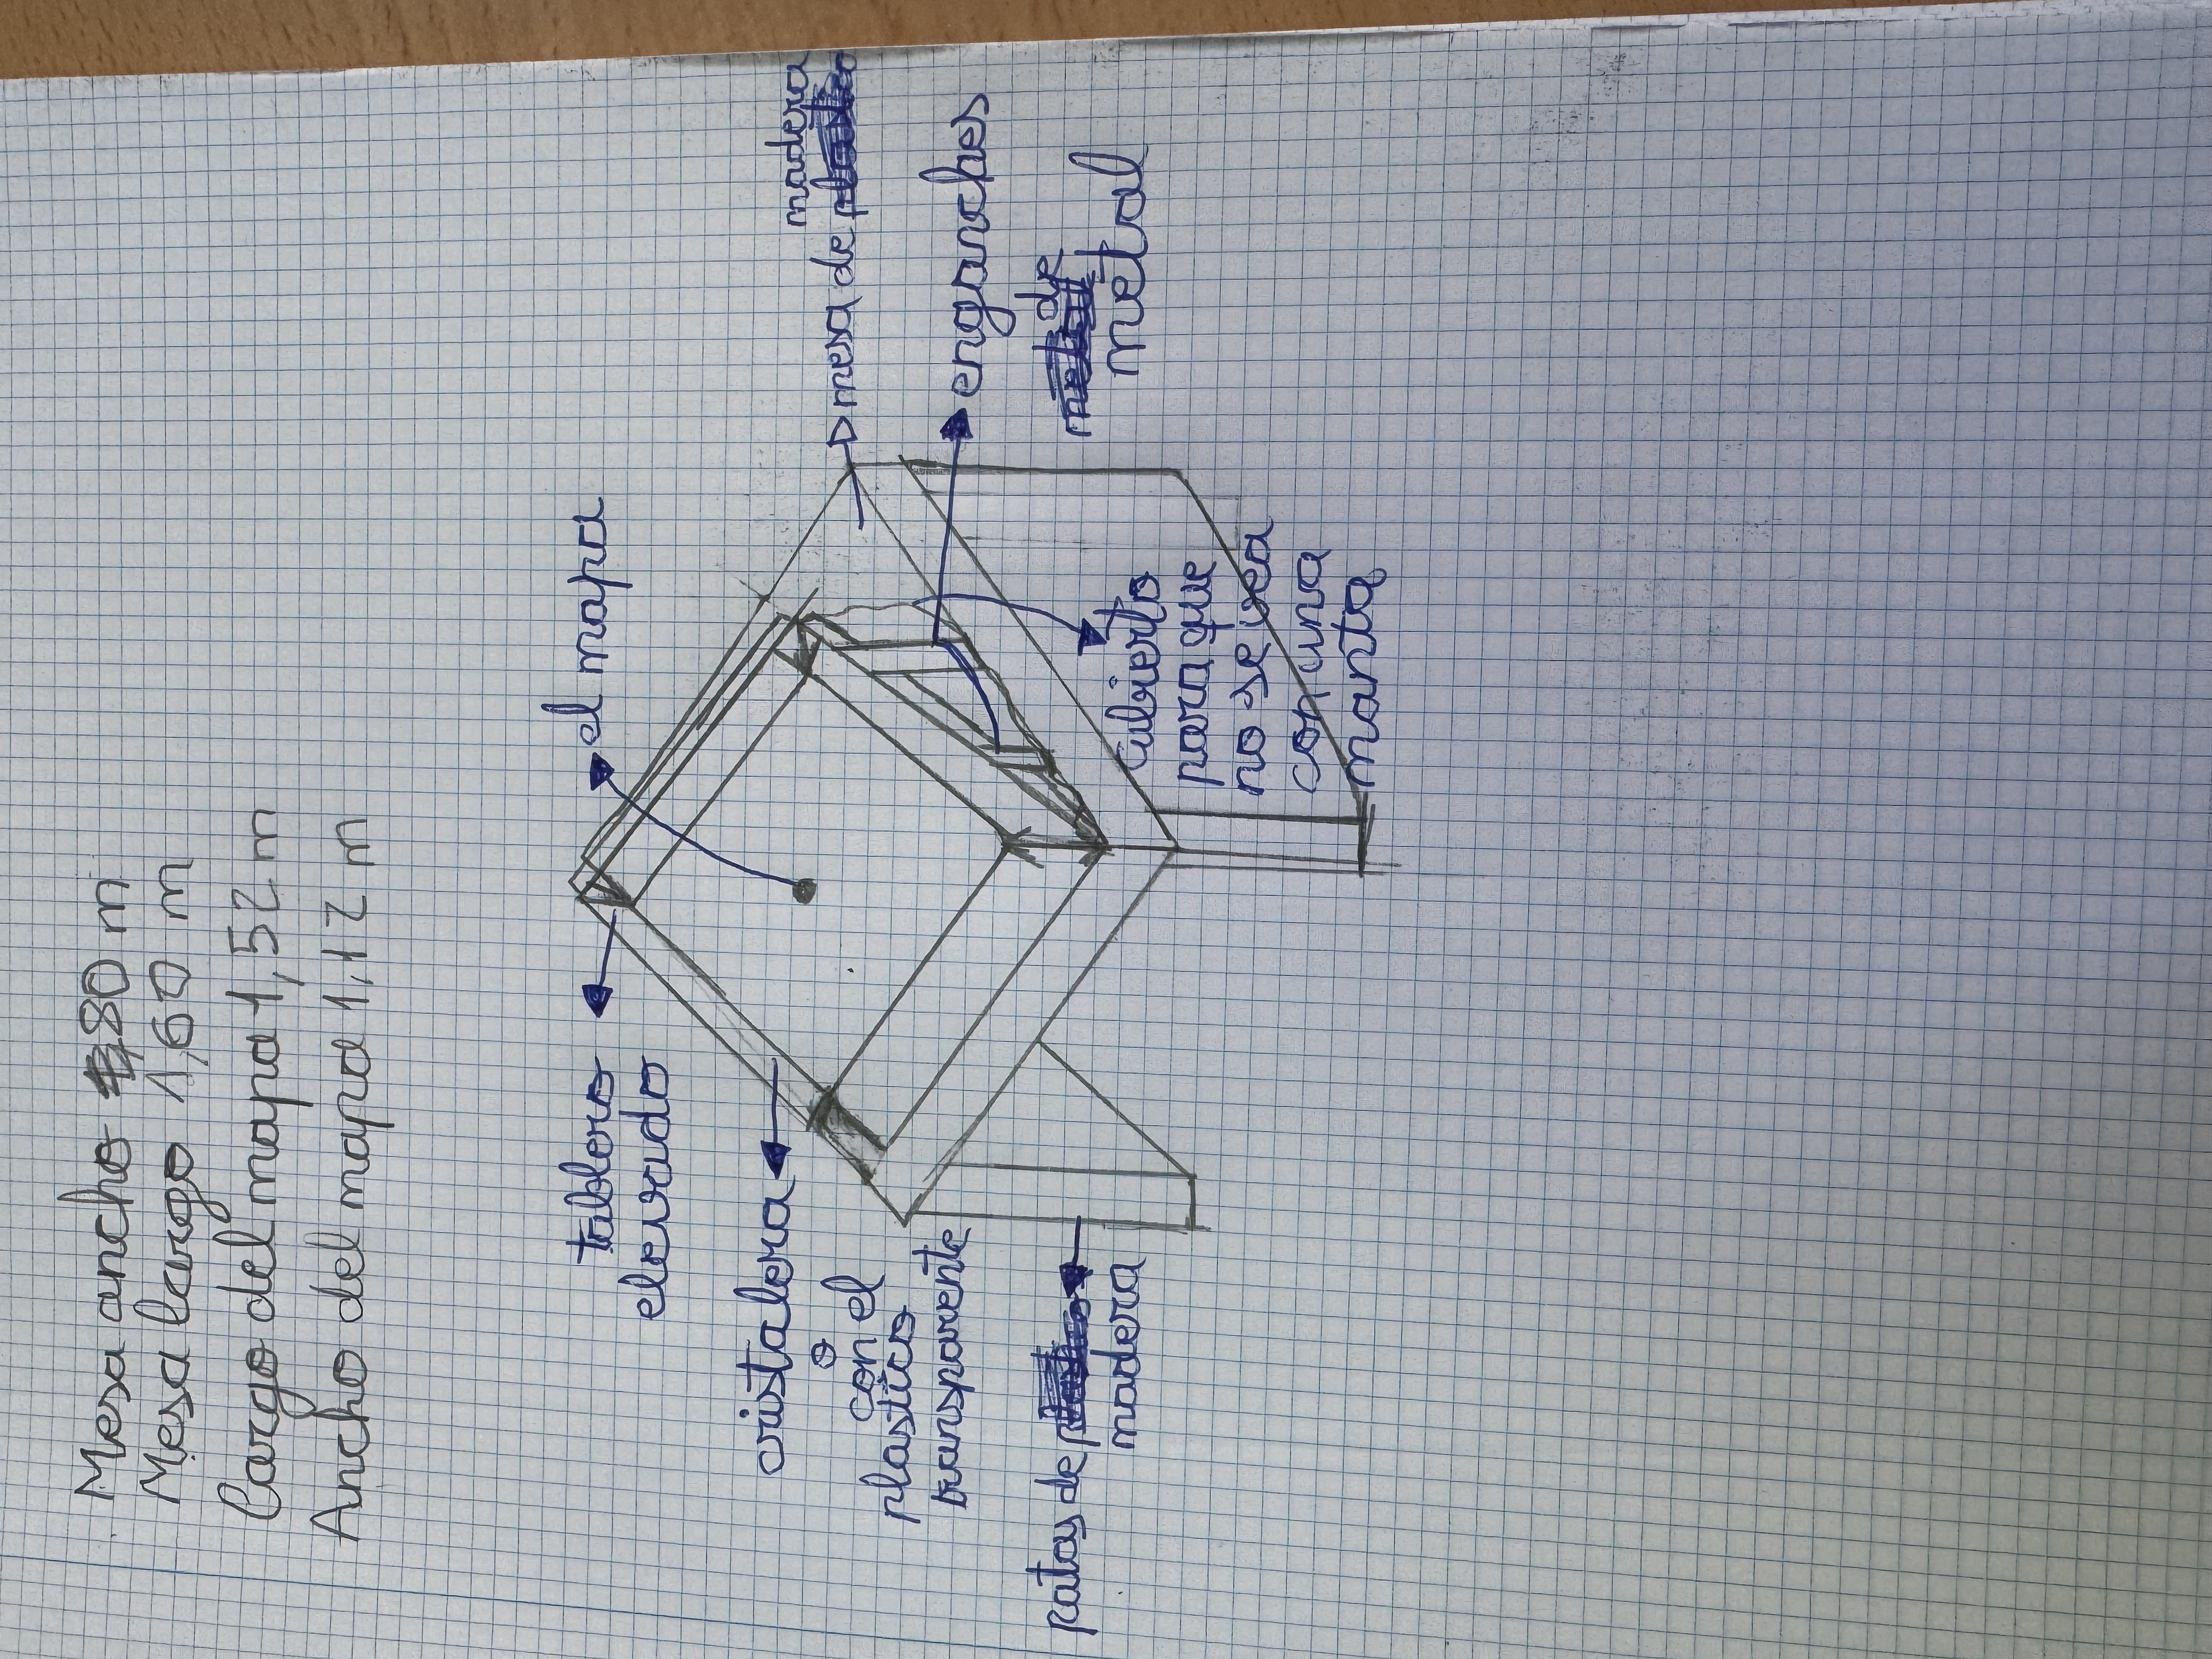 Mesa ancho 1,80 m
Mesa largo 1,60 m
Largo del mapa 1,52 m
Ancho del mapa 1,12 m
tablero
elevado
el mapa
cristalera
o
con el
plastico
transparente
madera
mesa de plastico
enganches
de
metal
metal
patas de plastico
madera
Cubierto
para que
no se vea
con una
manta